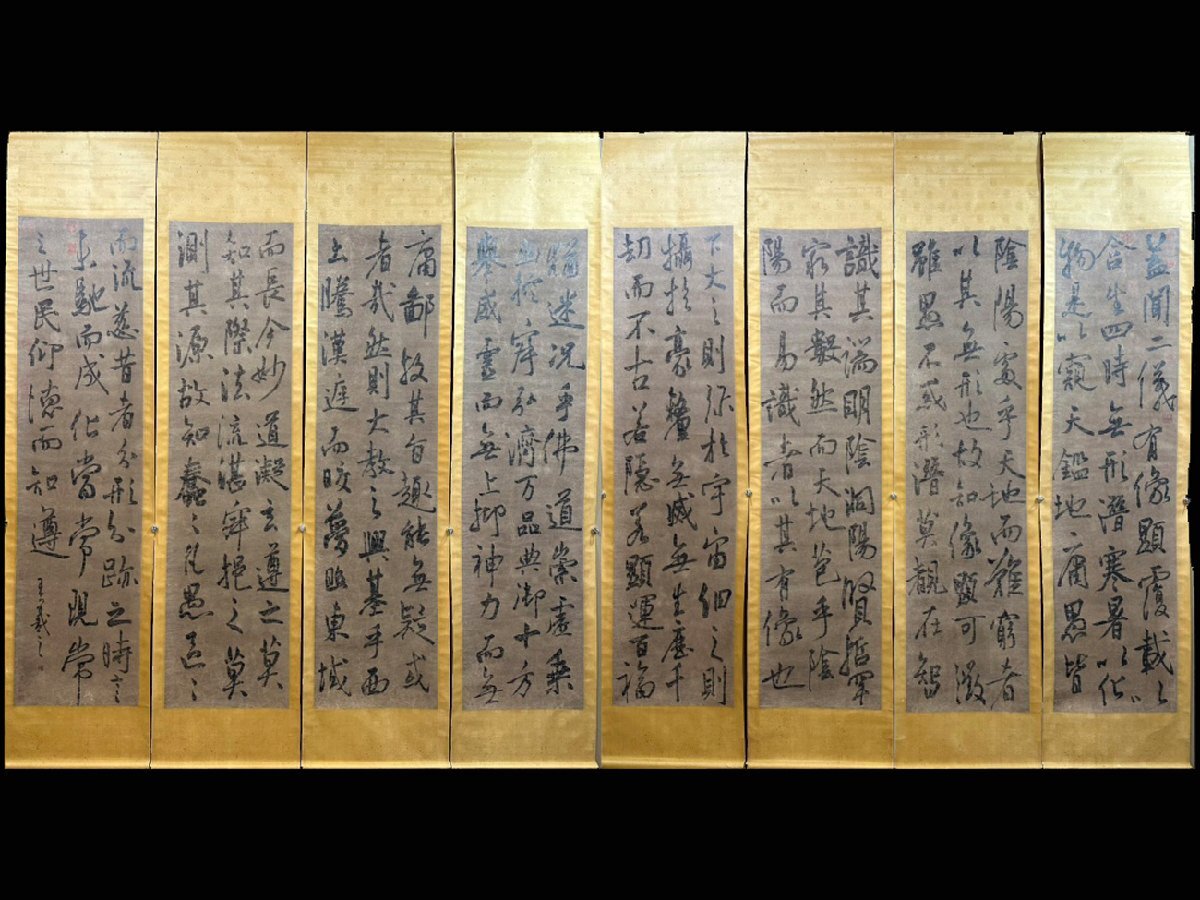 蓋聞二儀有像顯覆載以
含生四時無形潛寒暑以化
物是以窺天鑑地庸愚皆
陰陽處乎天地而難窮者
以其無形也故知像顯可徵
雖愚不惑形潛莫覩在智
識其端明陰洞陽賢哲罕
窮其數然而天地苞乎陰
陽而易識者以其有像也
下大之則彌於宇宙細之則
攝於毫釐無滅無生歷千
劫而不古若隱若顯運百福
猶迷況乎佛道崇虛乘
幽控寂弘濟万品典御十方
舉威靈而無上抑神力而無
庸鄙投其旨趣能無疑惑
者哉然則大教之興基乎西
土騰漢庭而皎夢照東域
而長今妙道凝玄遵之莫
知其際法流湛寂挹之莫
測其源故知蠢々凡愚區々
而流慈昔者分形分跡之時言
未馳而成化當常現常
之世民仰德而知遵 王羲之